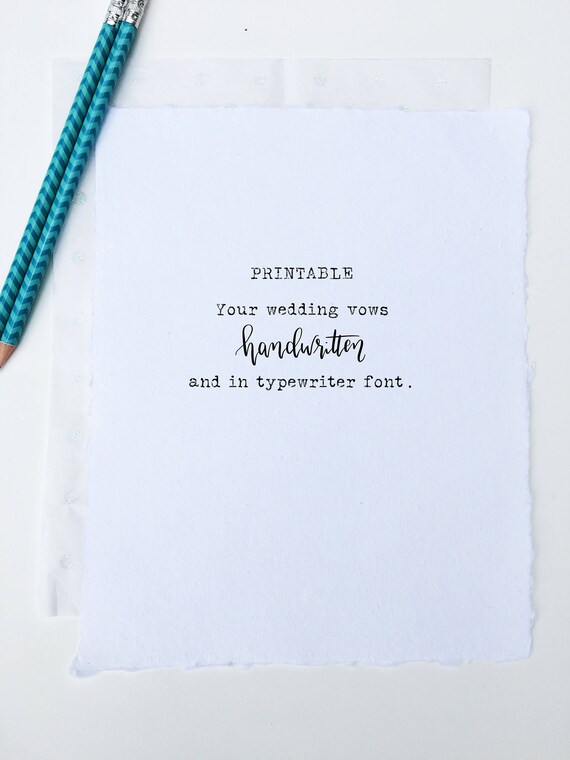 PRINTABLE
Your wedding vows
handwritten
and in typewriter font.